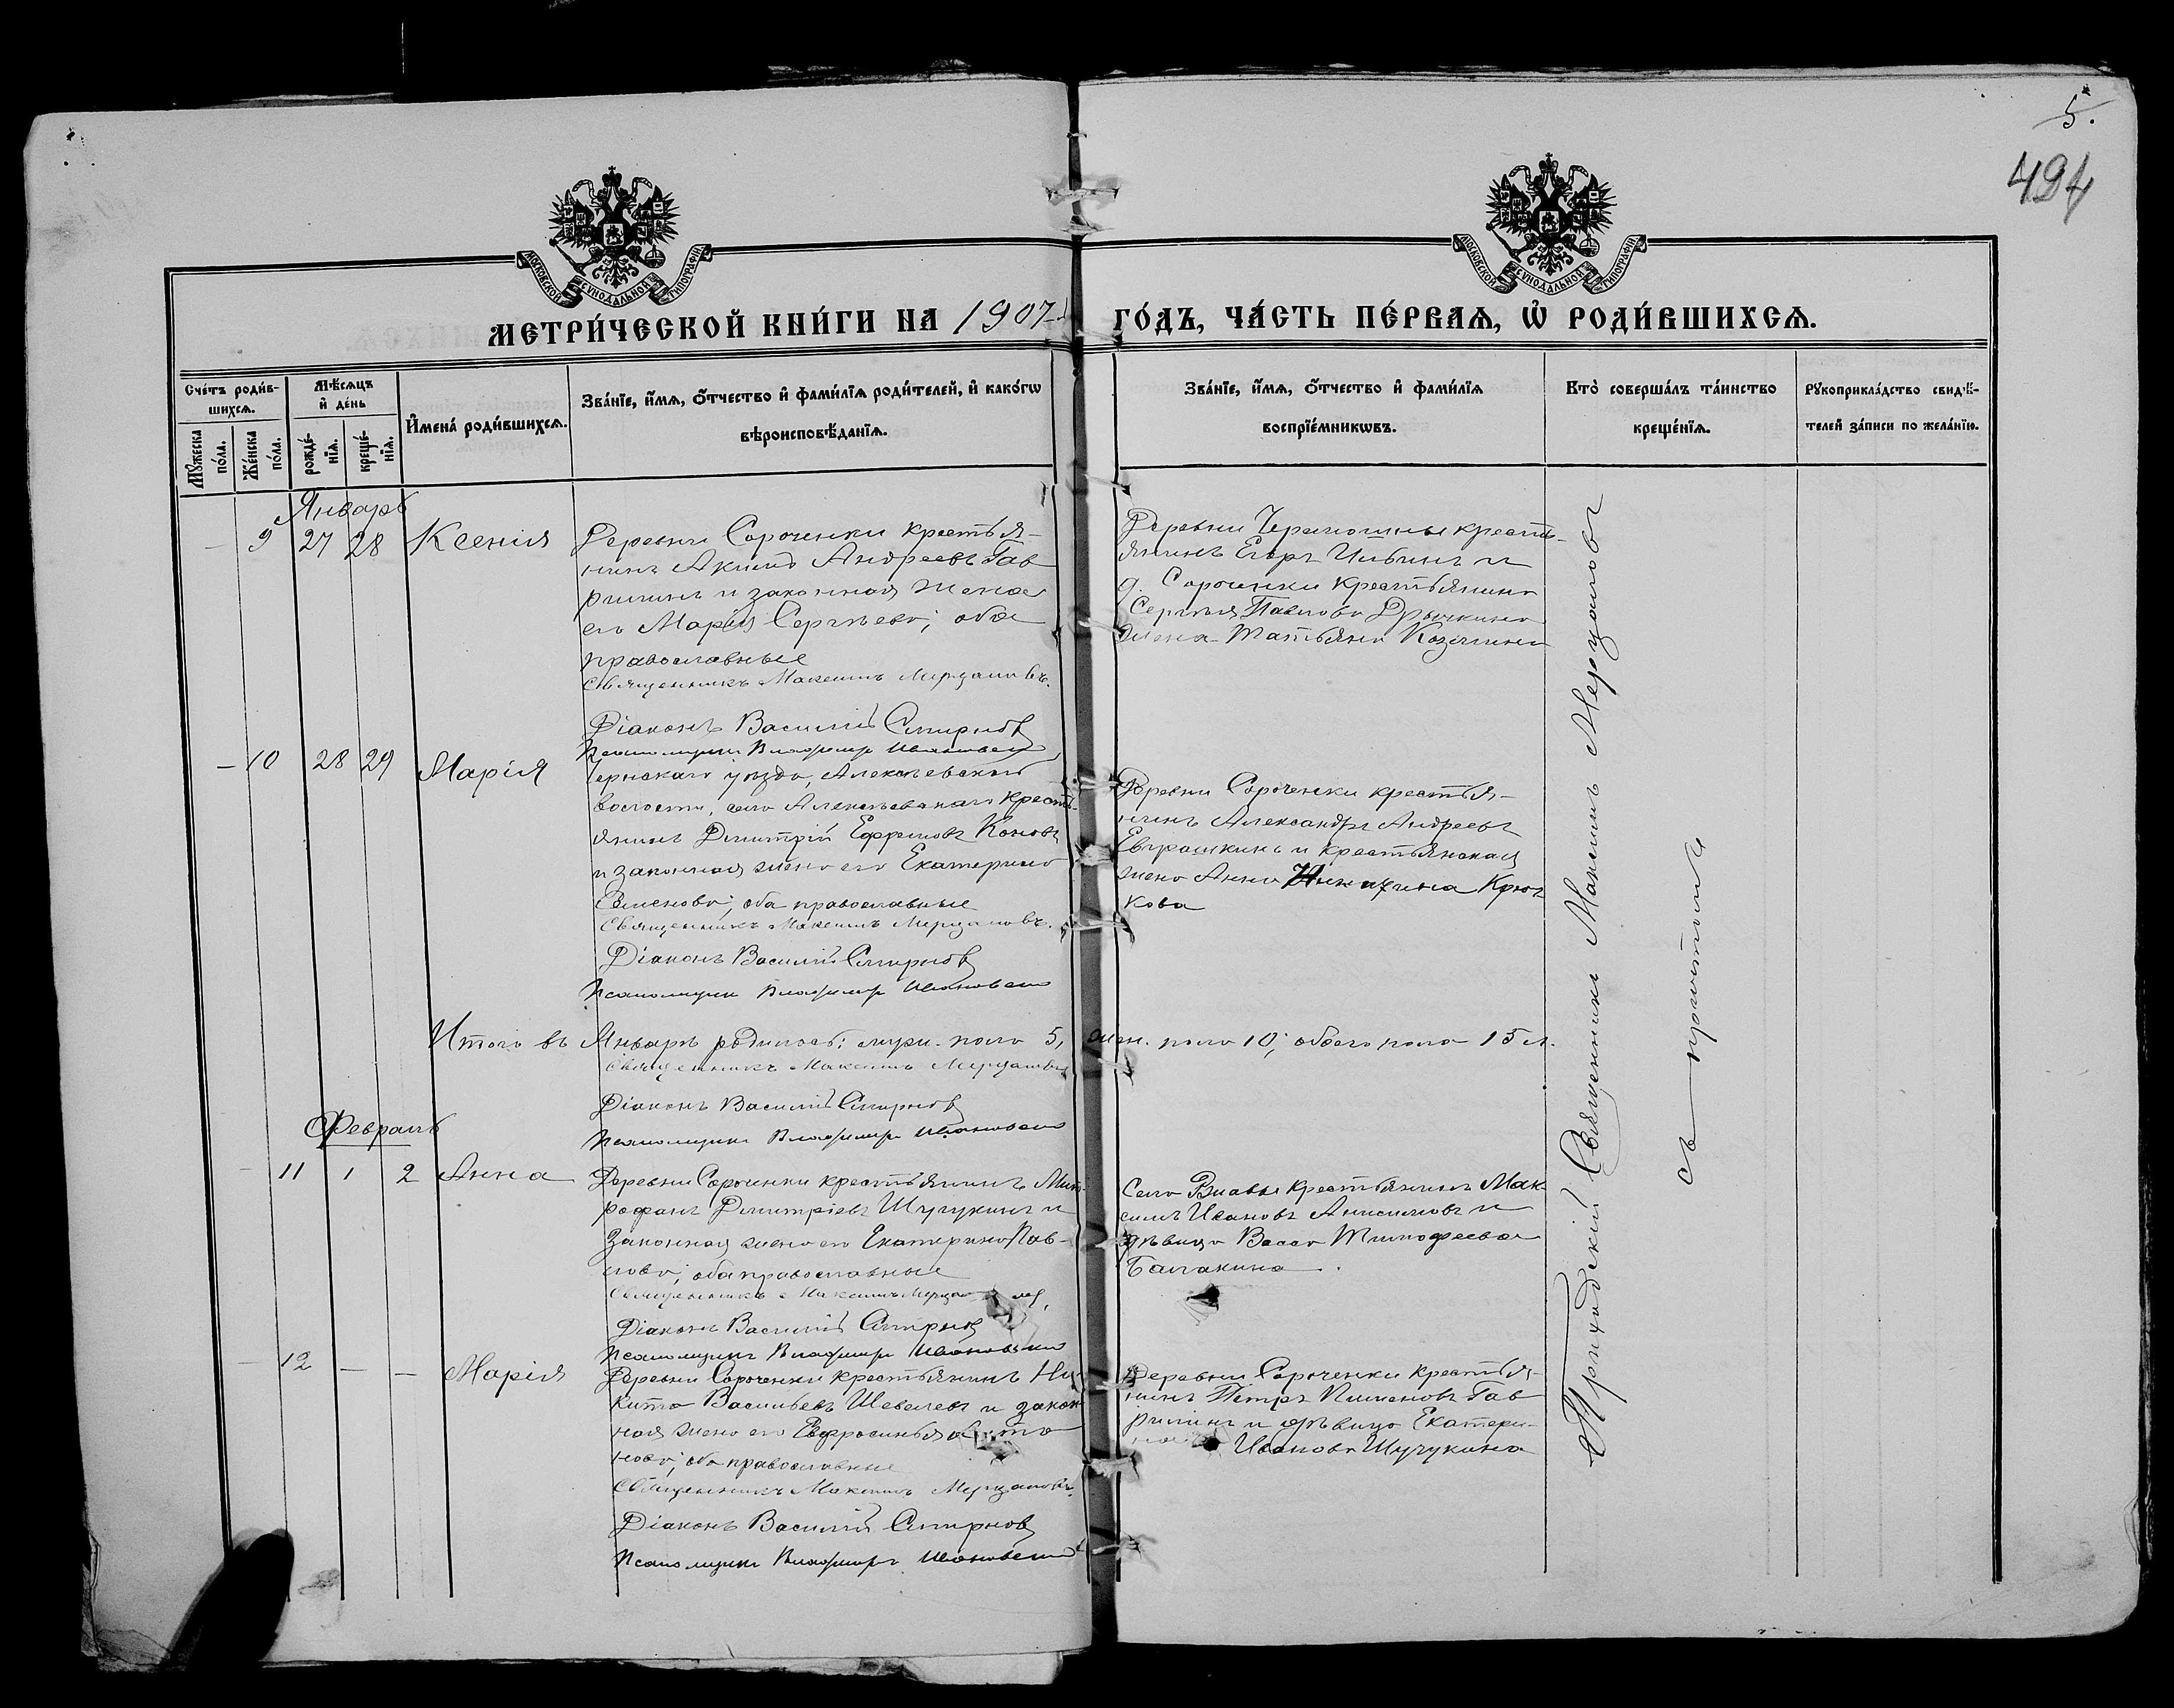 5.
494
МОСКОВСКОЙ СѴНОДАЛЬНОЙ ТИПОГРАФІИ
МОСКОВСКОЙ СѴНОДАЛЬНОЙ ТИПОГРАФІИ
МЕТРИ́ЧЕСКОЙ КНИ́ГИ НА 1907 ГО́ДЪ, ЧА́СТЬ ПЕ́РВАѦ, Ѡ҆ РОДИ́ВШИХСѦ.
Сче́тъ роди́в-
шихсѧ.
Мꙋ́жеска по́ла.
Же́нска по́ла.
Мѣ́сѧцъ и҆ де́нь
рожде́-
нїѧ.
креще́-
нїѧ.
И҆мена̀ роди́вшихсѧ.
Зва́нїе, и҆́мѧ, ѻ҆́тчество и҆ фами́лїѧ роди́телей, и҆ како́гѡ
вѣроисповѣ́данїѧ.
Зва́нїе, и҆́мѧ, ѻ҆́тчество и҆ фами́лїѧ
воспрїе́мникѡвъ.
Кто̀ соверша́лъ та́инство
креще́нїѧ.
Рꙋкоприкла́дство свидѣ́-
телей за́писи по жела́нїю.
Январь
– 9 27 28 Ксенія
Деревни Сороченки крестья-
нинъ Акимъ Андреевъ Гав
рилинъ и законная жена
его Марія Сергѣева; оба
православные
Священникъ Максимъ Мерцаловъ.
Діаконъ Василій Смирновъ
Псаломщикъ Владиміръ Ивановскій
Деревни крестья-
янинъ Егоръ Ильинъ и
д. Сороченки крестьянина
Сергѣя Павлова
жена Татьяна
– 10 28 29 Марія
Чернскаго уѣзда, Алексѣевской
волости, села Алексѣевскаго кресть-
янинъ Димитрій Ефремовъ Коновъ
и законная жена его Екатерина
Семенова; оба православные
Священникъ Максимъ Мерцаловъ.
Діаконъ Василій Смирновъ
Псаломщикъ Владиміръ Ивановскій
Деревни Сороченки крестья-
нинъ Александръ Андреевъ
Еврашкинъ и крестьянская
жена Анна Никитина Крюч
кова
Итого въ Январѣ родилось: муж. пола 5, жен. пола 10; обоего пола 15 л.
Священникъ Максимъ Мерцаловъ
Діаконъ Василій Смирновъ
Псаломщикъ Владиміръ Ивановскій
Февраль
11 1 2 Анна
Деревни Сороченки крестьянинъ Мит-
рофанъ Димитріевъ Шучукинъ и
законная жена его Екатерина Пав-
лова; оба православные
Священникъ Максимъ
Діаконъ Василій Смирновъ
Псаломщикъ Владиміръ Ивановскій
Села крестьянинъ Мак-
симъ Ивановъ Анисимовъ и
дѣвица Васса Тимофеева
Балакина.
12 – – Марія
Деревни Сороченки крестьянинъ Ни-
кита Васильевъ Шевелевъ и закон
ная жена его Евфросинья
нова; оба православные
Священникъ Максимъ Мерцаловъ.
Діаконъ Василій Смирновъ
Псаломщикъ Владиміръ Ивановскій
Деревни Сороченки крестья-
нинъ Петръ Пименовъ Гав
рилинъ и дѣвица Екатери-
на Иванова Шучукина
Приходскій Священникъ Максимъ Мерцаловъ
съ причтомъ